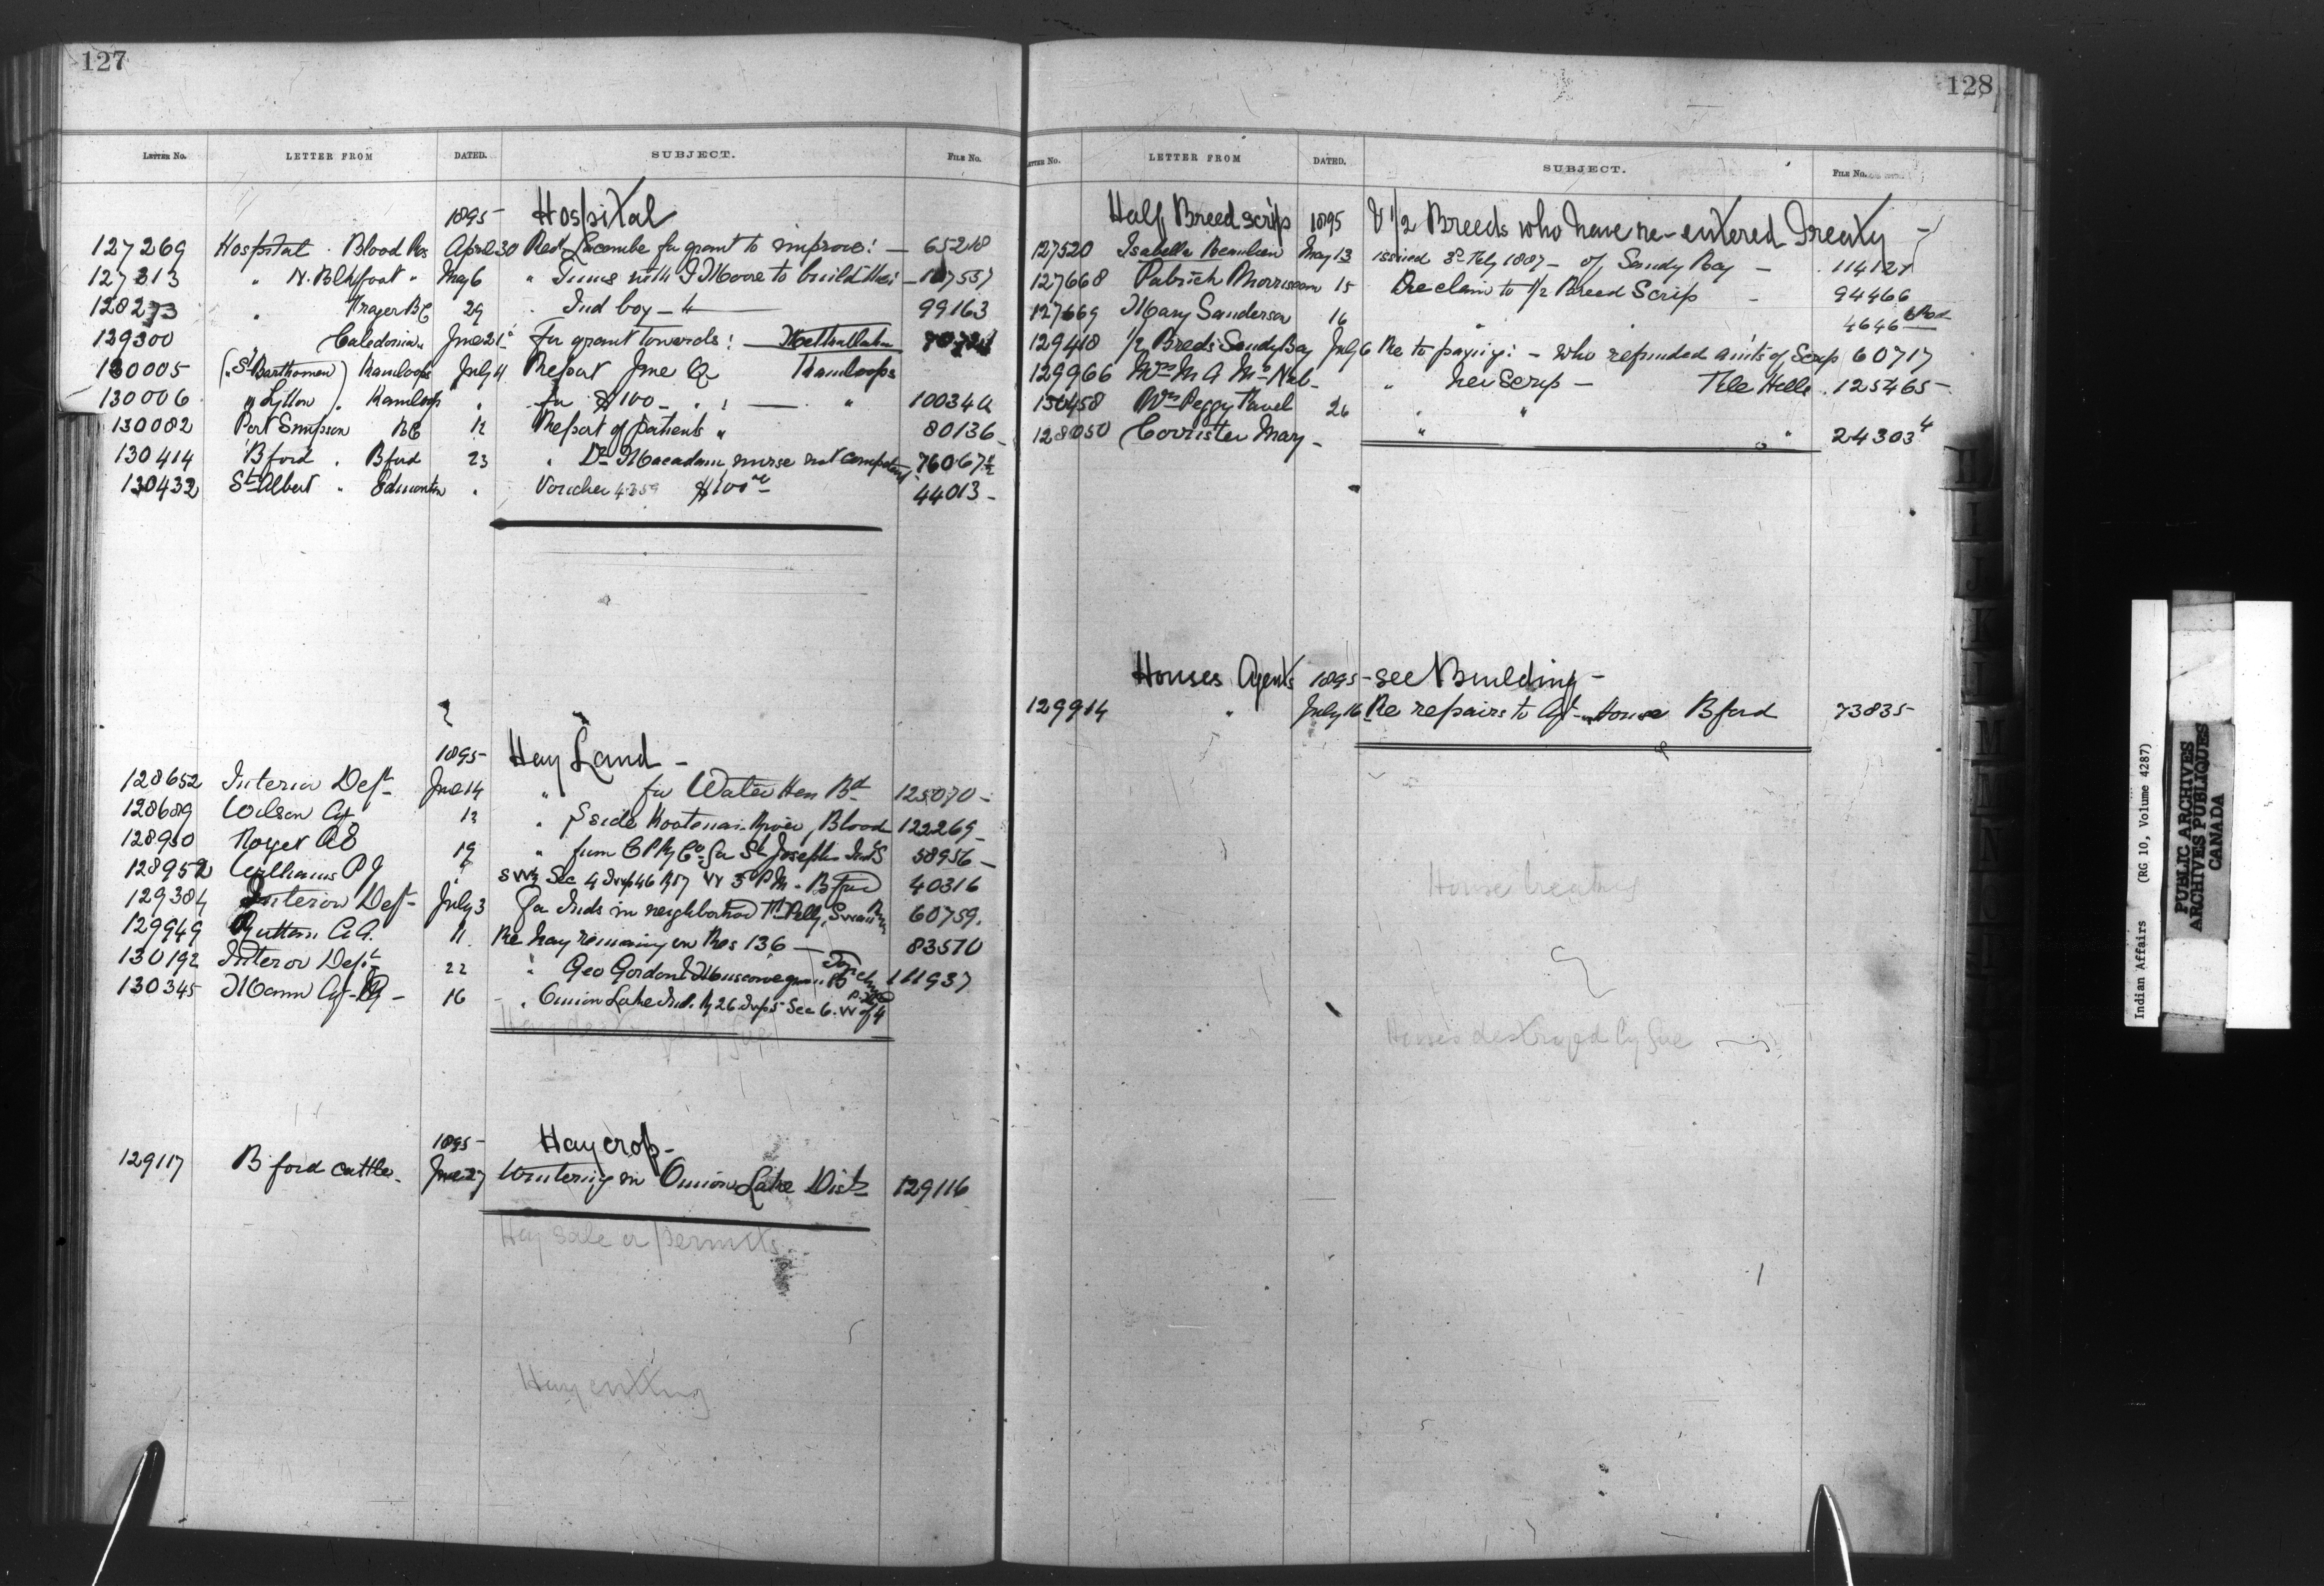 127
LETTER NO. LETTER FROM DATED. SUBJECT. FILE NO.
1895 Hospital
127269 Hospital . Blood Res April 30 Revd Lacombe for grant to improve! — 65218
127313 " N. Blkfoot " May 6 " Jures with J Moore to build this — 107537
128273 " Frazer BC 29 . Ind boy — 99163
129300 " Caledonia " June 21 for grant towards! — Metlakatla
130005 (" St Barthomew) Kamloops July 4 Report June Qr Kamloops
130006 " Lytton . Kamloops " for $100 — " ! — " 100344
130082 Port Simpson BC 12 Report of patients " 80136
130414 Bford . Bford 23 " Dr Macadam, nurse not competent 76067
130432 St Albert " Edmonton " Voucher 4359 $100 44013 -
1895 Hay Land -
128652 Interior Dept June 14 " for Water Hen Bd 125070 -
128689 Wilson Agt 13 " S side Kootenai River, Blood 122269 -
128950 19 " from C P Ry Co for St Joseph Inds 58956 -
128952 Williams P J " SW 1/2 Sec 4 Twp 46 R 17 W 3 P M - Bford 40316
129384 Interior Dept July 3 for Inds in neighborhood Ft Pelly, Swan Rr 60759.
129949 C. A. 11. Re hay remaining on Res 136 — 83570
130192 Interior Dept 22 " Geo Gordon & Muscowequan 111937
130345 Mann Agt - 16 - " Onion Lake Ind. R 26 Twp 5 Sec 6. W of 4
1895 Hay crop -
129117 Bford cattle - June 27 Wintering in Onion Lake Dist 129116
Hay sale or permits
Hay cutting
128
LETTER NO. LETTER FROM DATED. SUBJECT. FILE NO.
Half Breed scrip 1895 & 1/2 Breeds who have re-entered Treaty —
127520 Isabella Beaulieu May 13 issued 3d Feby 1887 - of Sandy Bay — 114127
127668 Patrick Morrisseau 15 Re claim to 1/2 Breed Scrip - 94466
127669 Mary Sanderson 16 " " 4646
129418 1/2 Breeds Sandy Bay July 6 Re to paying! - who refunded amts of Scrip 60717
129966 Mrs M A McNab - " her Scrip — File Hills . 125465 -
130458 Mrs Peggy Favel 26 " "
128050 Corrister Mary - " " 24303 4
Houses Agents 1895 - see Building -
129914 " July 16 Re repairs to Agt House Bford 73835
House
Houses destroyed by fire
Indian Affairs (RG 10, Volume 4287)
PUBLIC ARCHIVES
ARCHIVES PUBLIQUES
CANADA